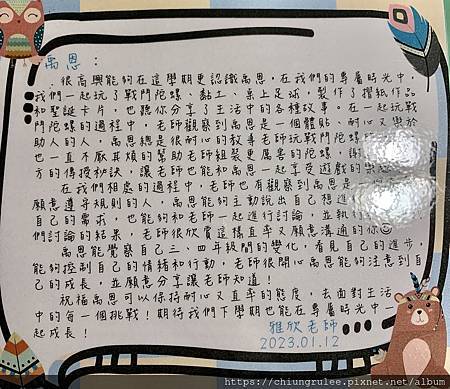 禹恩：
很高興能夠在這學期更認識禹恩，在我們的專屬時光中，
我們一起玩了戰鬥陀螺、黏土、桌上足球，製作了摺紙作品
和聖誕卡片，也聽你分享了生活中的各種故事。在一起玩戰
鬥陀螺的過程中，老師觀察到禹恩是一個體貼、耐心又樂於
助人的人，禹恩總是很耐心的教導老師玩戰鬥陀螺
也一直不厭其煩的幫助老師組裝更厲害的陀螺，謝
方的傳授秘訣，讓老師也能和禹恩一起享受遊戲的樂
在我們相處的過程中，老師也有觀察到禹恩是
願意遵守規則的人，禹恩能夠主動說出自己想進
自己的需求，也能夠和老師一起進行討論，並執行
們討論的結果，老師很欣賞這樣直率又願意溝通的你
禹恩能覺察自己三、四年級間的變化，看見自己的進步，
能夠控制自己的情緒和行動，老師很開心禹恩能夠注意到自
己的成長，並願意分享讓老師知道！
祝福禹恩可以保持耐心又直率的態度，去面對生活
中的每一個挑戰！期待我們下學期也能在專屬時光中一
起成長！
雅欣老師
2023.01.12
https://chiungrulee.pixnet.net/album